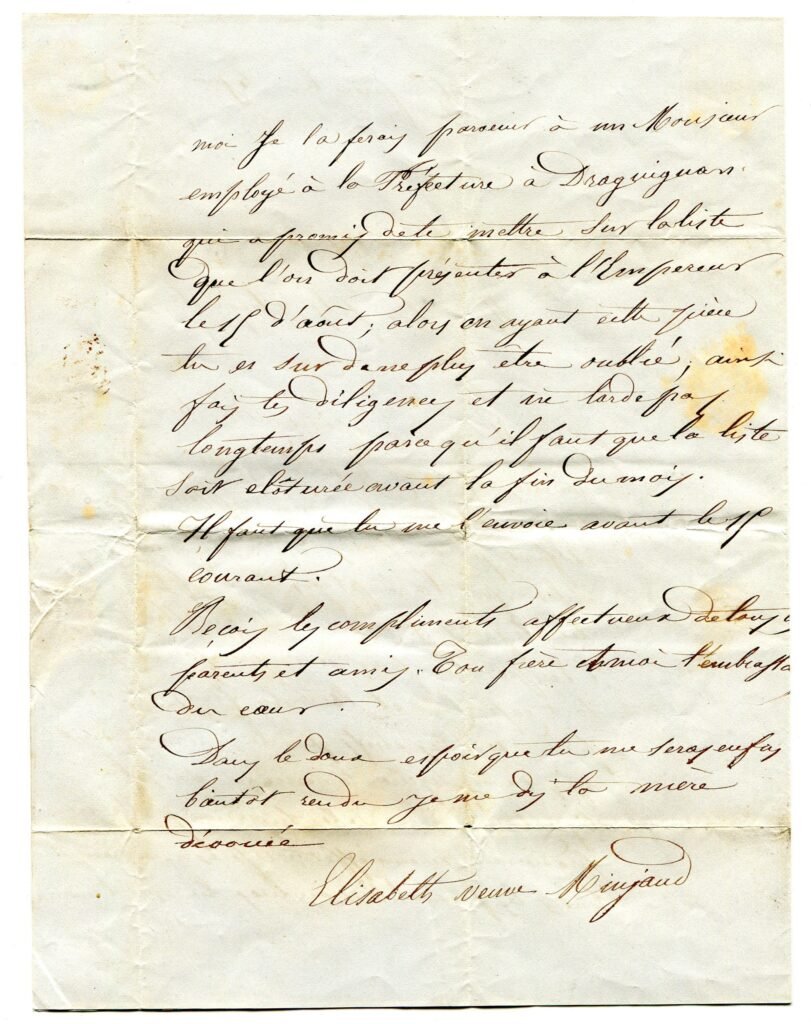 moi Je la ferais parvenir à un Monsieur
employé à la Préfecture à Draguignan.
qui a promis de te mettre sur la liste
que l'on doit présenter à l'Empereur
le 15 d'aôut; alors en ayant cette pièce
tu es sur de ne plus être oublié; ainsi
fais tes diligences et ne tarde pas
longtemps parce qu'il faut que la liste
soit clôturée avant la fin du mois.
Il faut que tu me l'envoie avant le 15
courant.
Reçois les compliments affectueux de tous
parents et amis. Ton frère et moi t'embrassons
du cœur.
Dans le doux espoir que tu me seras enfin
bientôt rendu je me dis ta mère
dévouée
Elisabeth veuve Minjaud